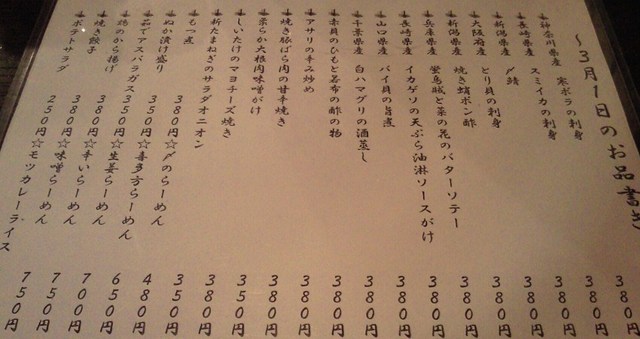 〜3月1日のお品書き
神奈川県産 寒ボラの刺身 380円
長崎県産 スミイカの刺身 380円
長崎県産 〆鯖 380円
新潟県産 とり貝の刺身 380円
大阪府産 焼き蛸ポン酢 380円
新潟県産 蛍烏賊と菜の花のバターソテー 380円
兵庫県産 イカゲソの天ぷら油淋ソースがけ 380円
長崎県産 バイ貝の旨煮 380円
山口県産 白ハマグリの酒蒸し 380円
千葉県産
赤貝のひもと若布の酢の物 380円
アサリの辛み炒め 380円
焼き豚ばら肉の甘辛焼き 380円
柔らか大根肉味噌がけ 380円
しいたけのマヨチーズ焼き 380円
新たまねぎのサラダオニオン 380円
もつ煮 350円
ぬか漬け盛り 380円☆〆のらーめん 480円
茹でアスパラガス 350円☆喜多方らーめん 650円
鶏のから揚げ 350円☆生姜らーめん 700円
焼き餃子 380円☆辛いらーめん 700円
ポテトサラダ 380円☆味噌らーめん 750円
250円☆モツカレーライス 750円